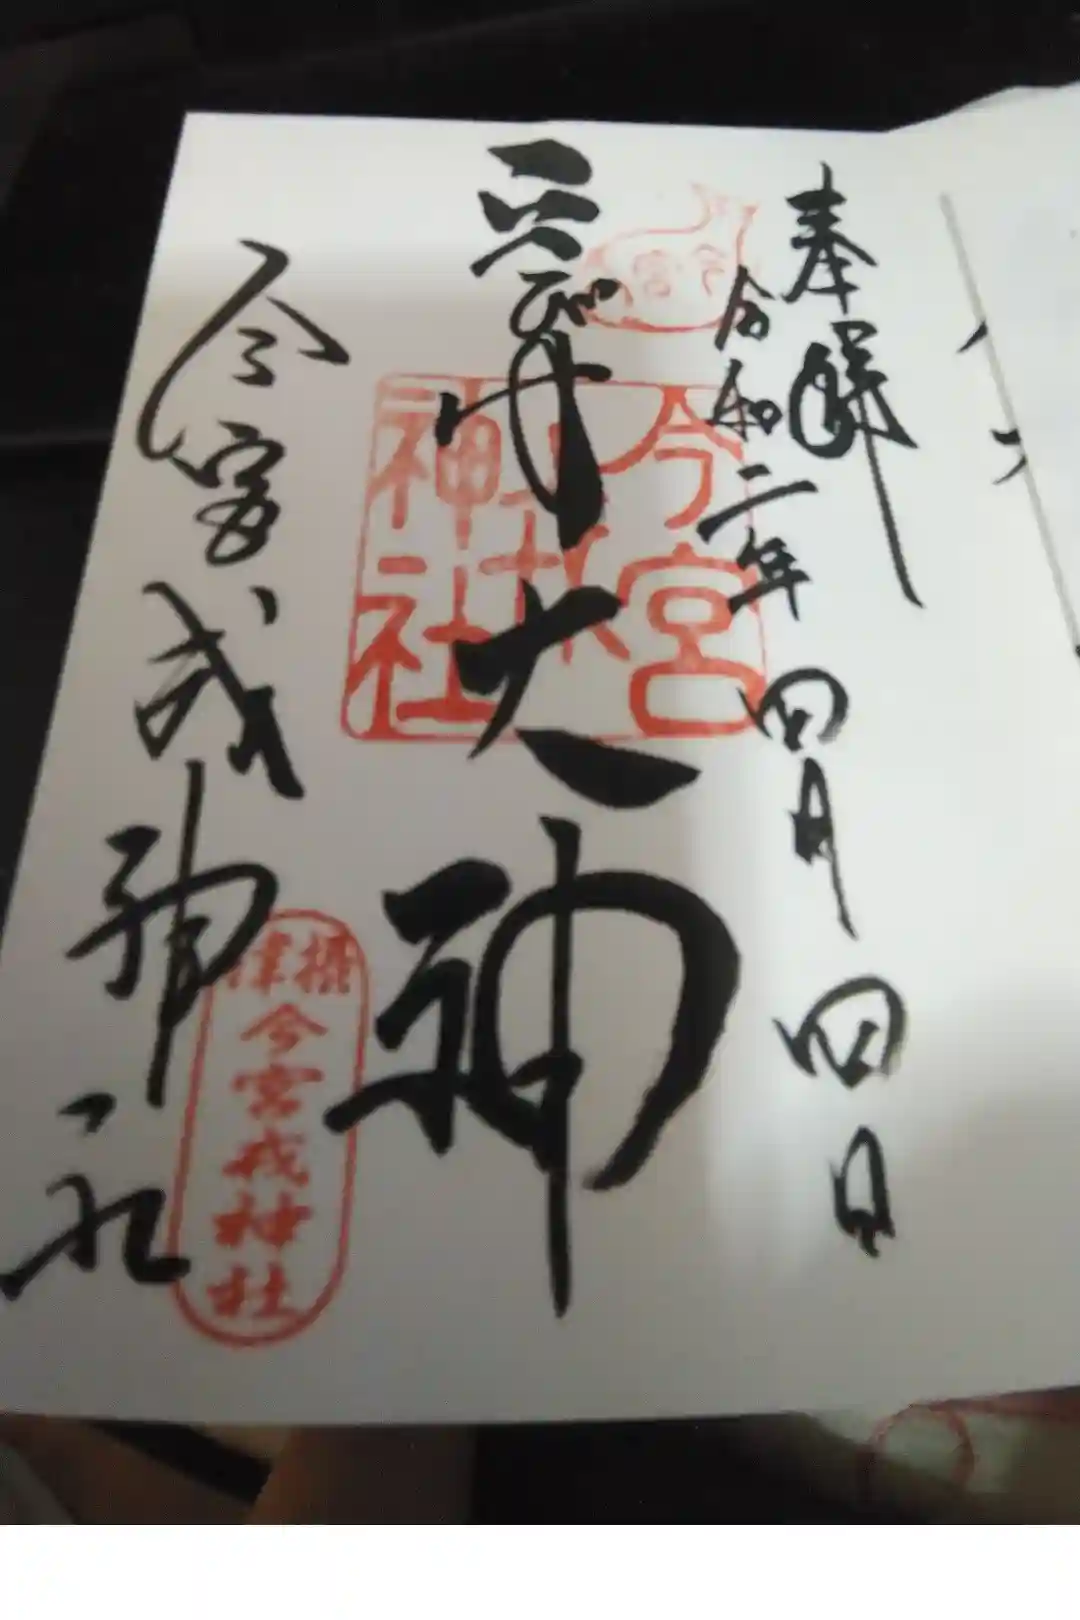 奉拝
令和二年四月四日
大神
今宮戎神社
今宮
今宮
戎
神社
摂津
今宮戎神社